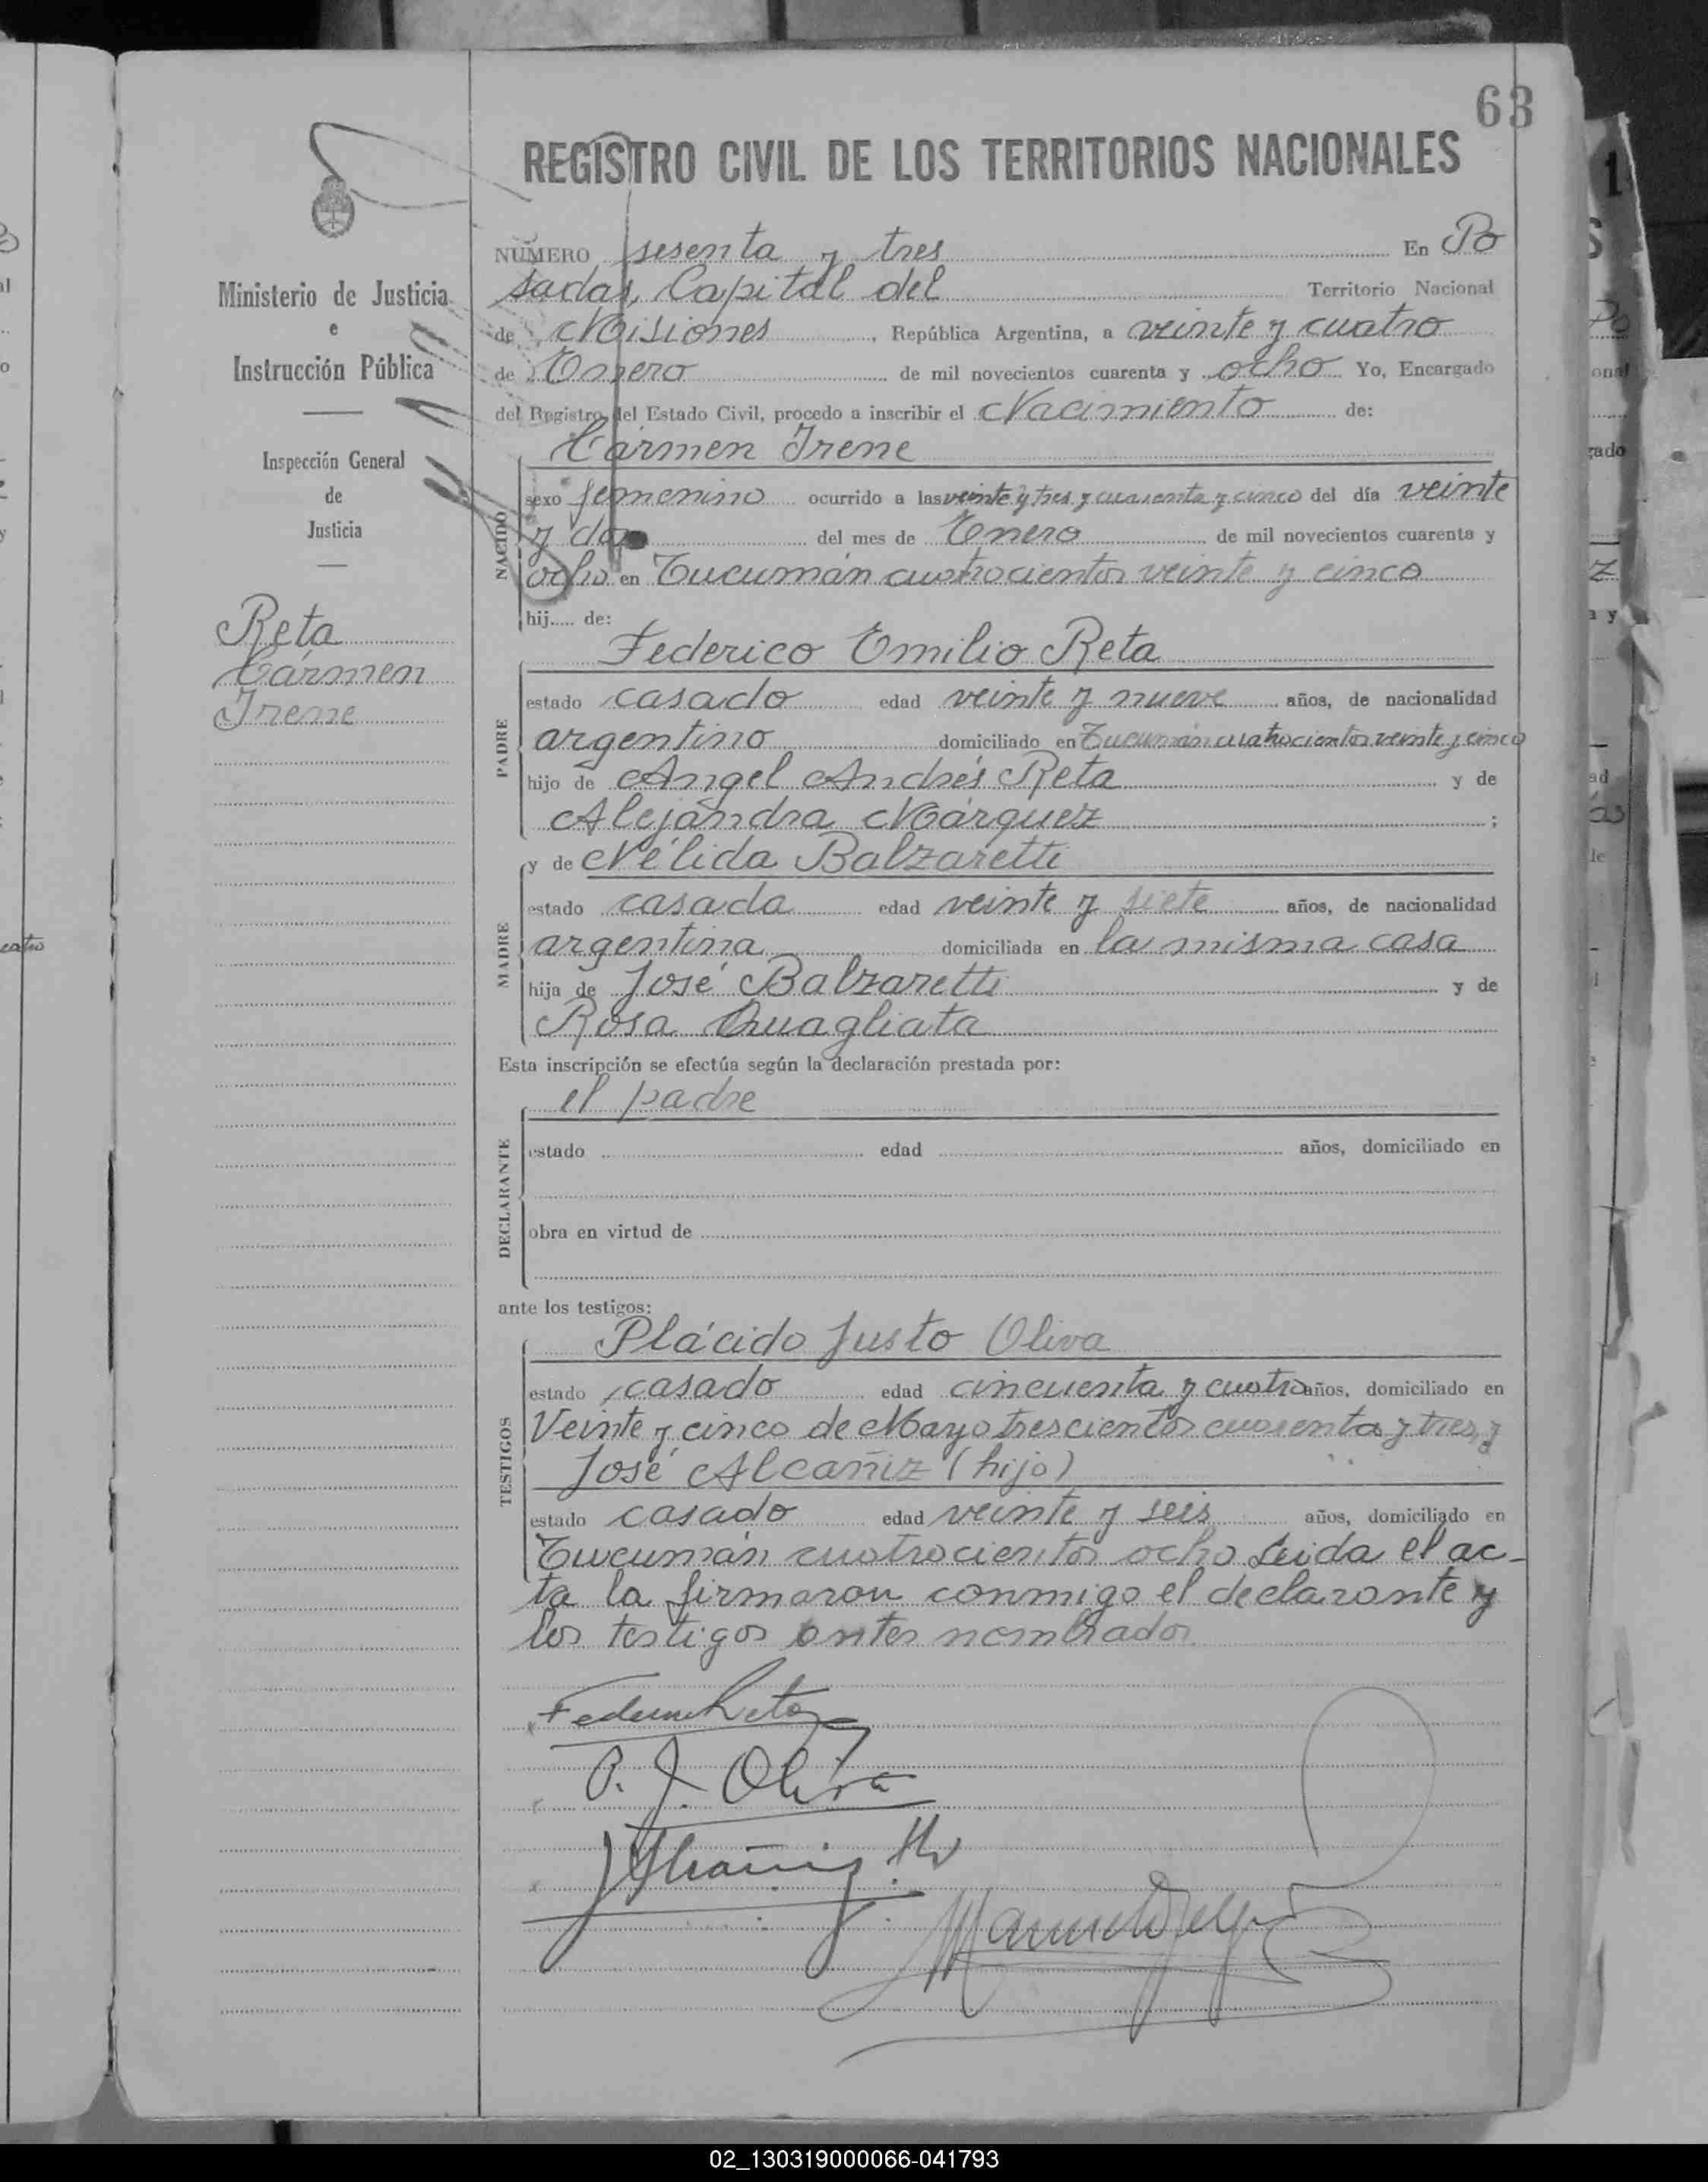 63
REGISTRO CIVIL DE LOS TERRITORIOS NACIONALES
Ministerio de Justicia
e
Instrucción Pública
Inspección General
de
Justicia
Reta
Cármen
Irene
NÚMERO sesenta y tres En Po
sadas, Capital del Territorio Nacional
de Misiones, República Argentina, a veinte y cuatro
de Enero de mil novecientos cuarenta y ocho Yo, Encargado
del Registro del Estado Civil, procedo a inscribir el Nacimiento de:
Cármen Irene
NACIDO
sexo femenino ocurrido a las veinte y tres y cuarenta y cinco del día veinte
y dos del mes de Enero de mil novecientos cuarenta y
ocho en Tucumán cuatrocientos veinte y cinco
hij..... de:
Federico Emilio Reta
PADRE
estado casado edad veinte y nueve años, de nacionalidad
argentino domiciliado en Tucumán cuatrocientos veinte y cinco
hijo de Angel Andrés Reta y de
Alejandra Márquez ;
y de Nélida Balzaretti
MADRE
estado casada edad veinte y siete años, de nacionalidad
argentina domiciliada en la misma casa
hija de José Balzaretti y de
Rosa Quagliata
Esta inscripción se efectúa según la declaración prestada por:
el padre
DECLARANTE
estado edad años, domiciliado en
obra en virtud de
ante los testigos:
Plácido Justo Oliva
TESTIGOS
estado casado edad cincuenta y cuatro años, domiciliado en
Veinte y cinco de Mayo trescientos cuarenta y tres, y
José Alcañiz (hijo)
estado casado edad veinte y seis años, domiciliado en
Tucumán cuatrocientos ocho Leida el ac-
ta la firmaron conmigo el declarante y
los testigos antes nombrados
P. J. Oliva
02_130319000066-041793